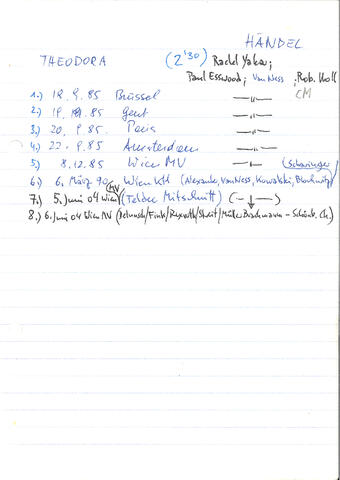 HÄNDEL
THEODORA (2'30) Rachel Yakar;
Paul Esswood; Van Ness; Rob. Holl
CM
1.) 18. 9. 85 Brüssel —"—
2.) 19. 9. 85 Gent —"—
3.) 20. 9. 85 Paris —"—
4.) 22. 9. 85 Amsterdam —"—
5.) 8. 12. 85 Wien MV —"— (Scharinger)
6.) 6. März 90 Wien KH (Alexander, Van Ness, Kowalski, Blochwitz)
7.) 5. Juni 04 Wien MV (Teldec Mitschnitt) (—↓—)
8.) 6. Juni 04 Wien MV (Röschmann/Fink/ / /Müller Brachmann – Schönb. Ch.)